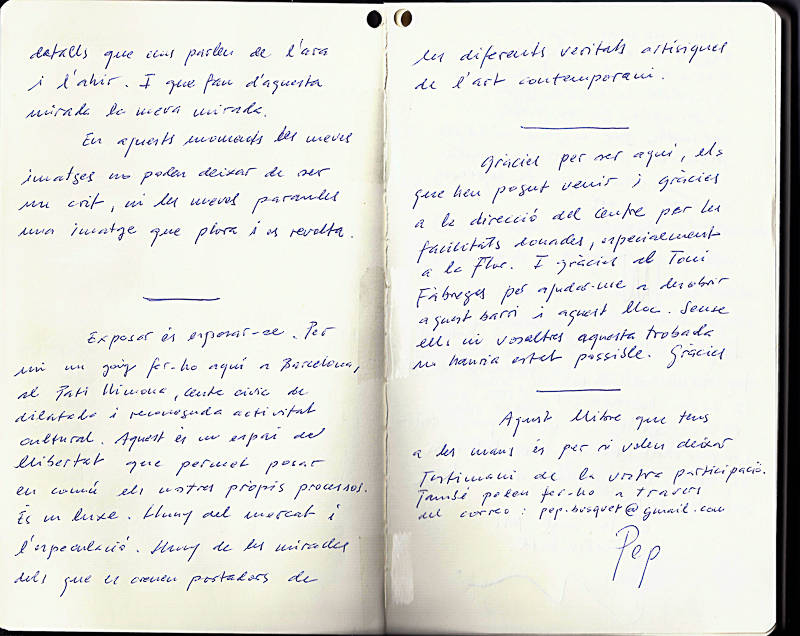 detalls que ens parlen de l'ara
i l'ahir. I que fan d'aquesta
mirada la meva mirada.
En aquests moments les meves
imatges no poden deixar de ser
un crit, ni les meves paraules
una imatge que plora i es revolta.
Exposar és exposar-se. Per
mi un goig fer-ho aquí a Barcelona,
al Pati Llimona, centre cívic de
dilatada i reconeguda activitat
cultural. Aquest és un espai de
llibertat que permet posar
en comú els nostres propis processos.
És un luxe. Lluny del mercat i
l'especulació. Lluny de les mirades
dels que es creuen portadors de
les diferents veritats artísiques
de l'art contemporani.
Gràcies per ser aquí, els
que heu pogut venir i gràcies
a la direcció del centre per les
facilitats donades, especialment
a la Flor. I gràcies al Toni
Fàbreges per ajudar-me a descobrir
aquest barri i aquest lloc. Sense
ells ni vosaltres aquesta trobada
no hauria estat possible. Gràcies
Aquest llibre que tens
a les mans és per si voleu deixar
Testimoni de la vostra participació.
També podeu fer-ho a travers
del correo: pep.busquet@gmail.com
Pep